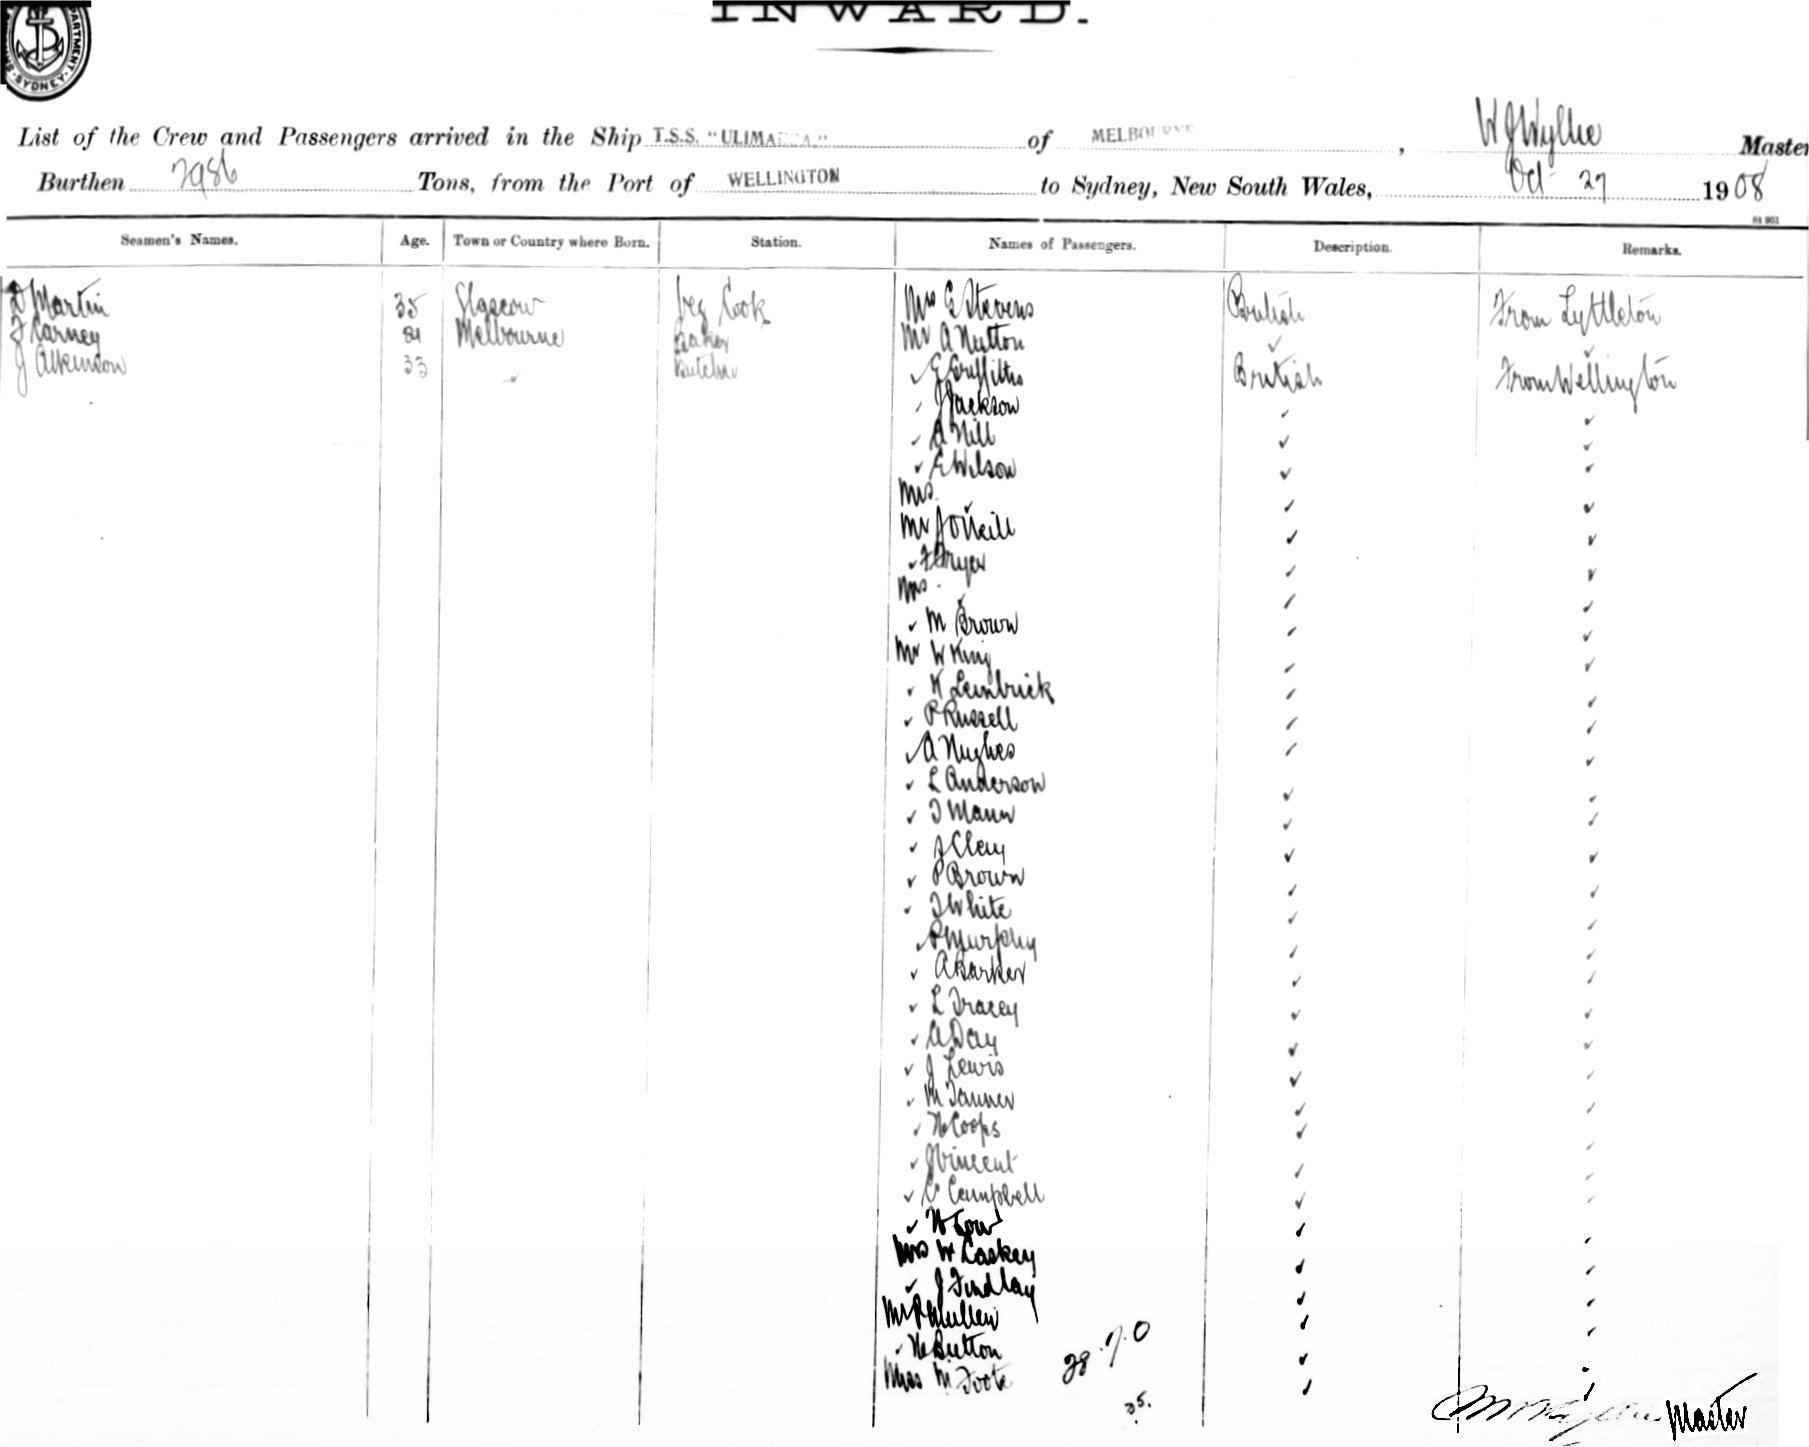 INWARD.
SYDNEY
List of the Crew and Passengers arrived in the Ship T.S.S. "ULIMAROA" of MELBOURNE, W J Wyllie Master
Burthen Tons, from the Port of WELLINGTON to Sydney, New South Wales, Oct 27 1908
Seamen's Names. Age. Town or Country where Born. Station. Names of Passengers. Description. Remarks.
D Martin 35 Glasgow Veg Cook Mrs E Stevens British From Lyttleton
F Carney Melbourne Baker Mr A Hutton ✓ ✓
J Atkinson 33 Butcher ✓ G Griffiths British From Wellington
✓ J Jackson ✓ ✓
✓ A Hill ✓ ✓
✓ E Wilson ✓ ✓
Mrs ✓ ✓ ✓
Mr J O'Neill ✓ ✓
✓ F Fryer ✓ ✓
Mrs ✓ ✓ ✓
✓ M Brown ✓ ✓
Mr W King ✓ ✓
✓ K Lembrick ✓ ✓
✓ P Russell ✓ ✓
✓ A Hughes ✓ ✓
✓ L Anderson ✓ ✓
✓ T Mann ✓ ✓
✓ J Clay ✓ ✓
✓ P Brown ✓ ✓
✓ T White ✓ ✓
✓ P Murphy ✓ ✓
✓ A Barker ✓ ✓
✓ L Tracey ✓ ✓
✓ A Day ✓ ✓
✓ J Lewis ✓ ✓
✓ M Tanner ✓ ✓
✓ H Coops ✓ ✓
✓ J Vincent ✓ ✓
✓ C Campbell ✓ ✓
✓ H Cow ✓ ✓
Mrs W Caskey ✓ ✓
✓ J Findlay ✓ ✓
Mr P Mullen ✓ ✓
✓ H Button ✓ ✓
Miss M Foote 28.7.0 ✓ ✓
35.
Master